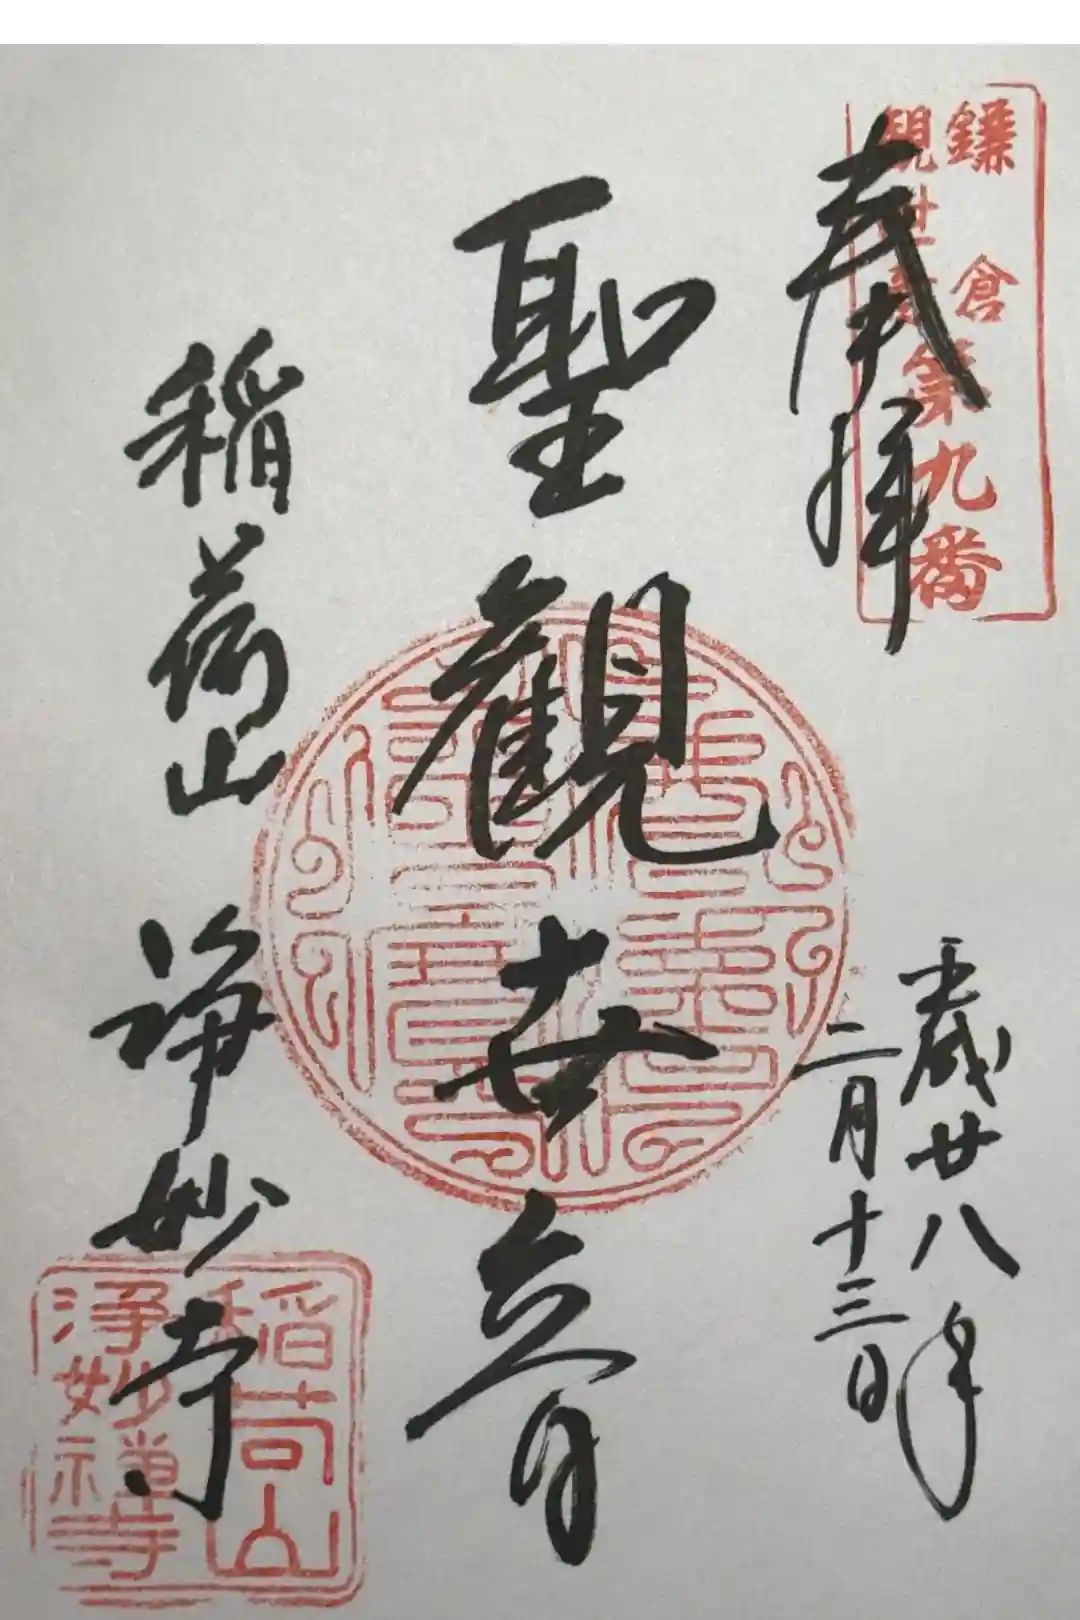 鎌倉
観世音
第九番
奉拝
平成廿八年
二月十三日
聖観世音
稲荷山
浄妙寺
稲荷山
浄妙禅寺